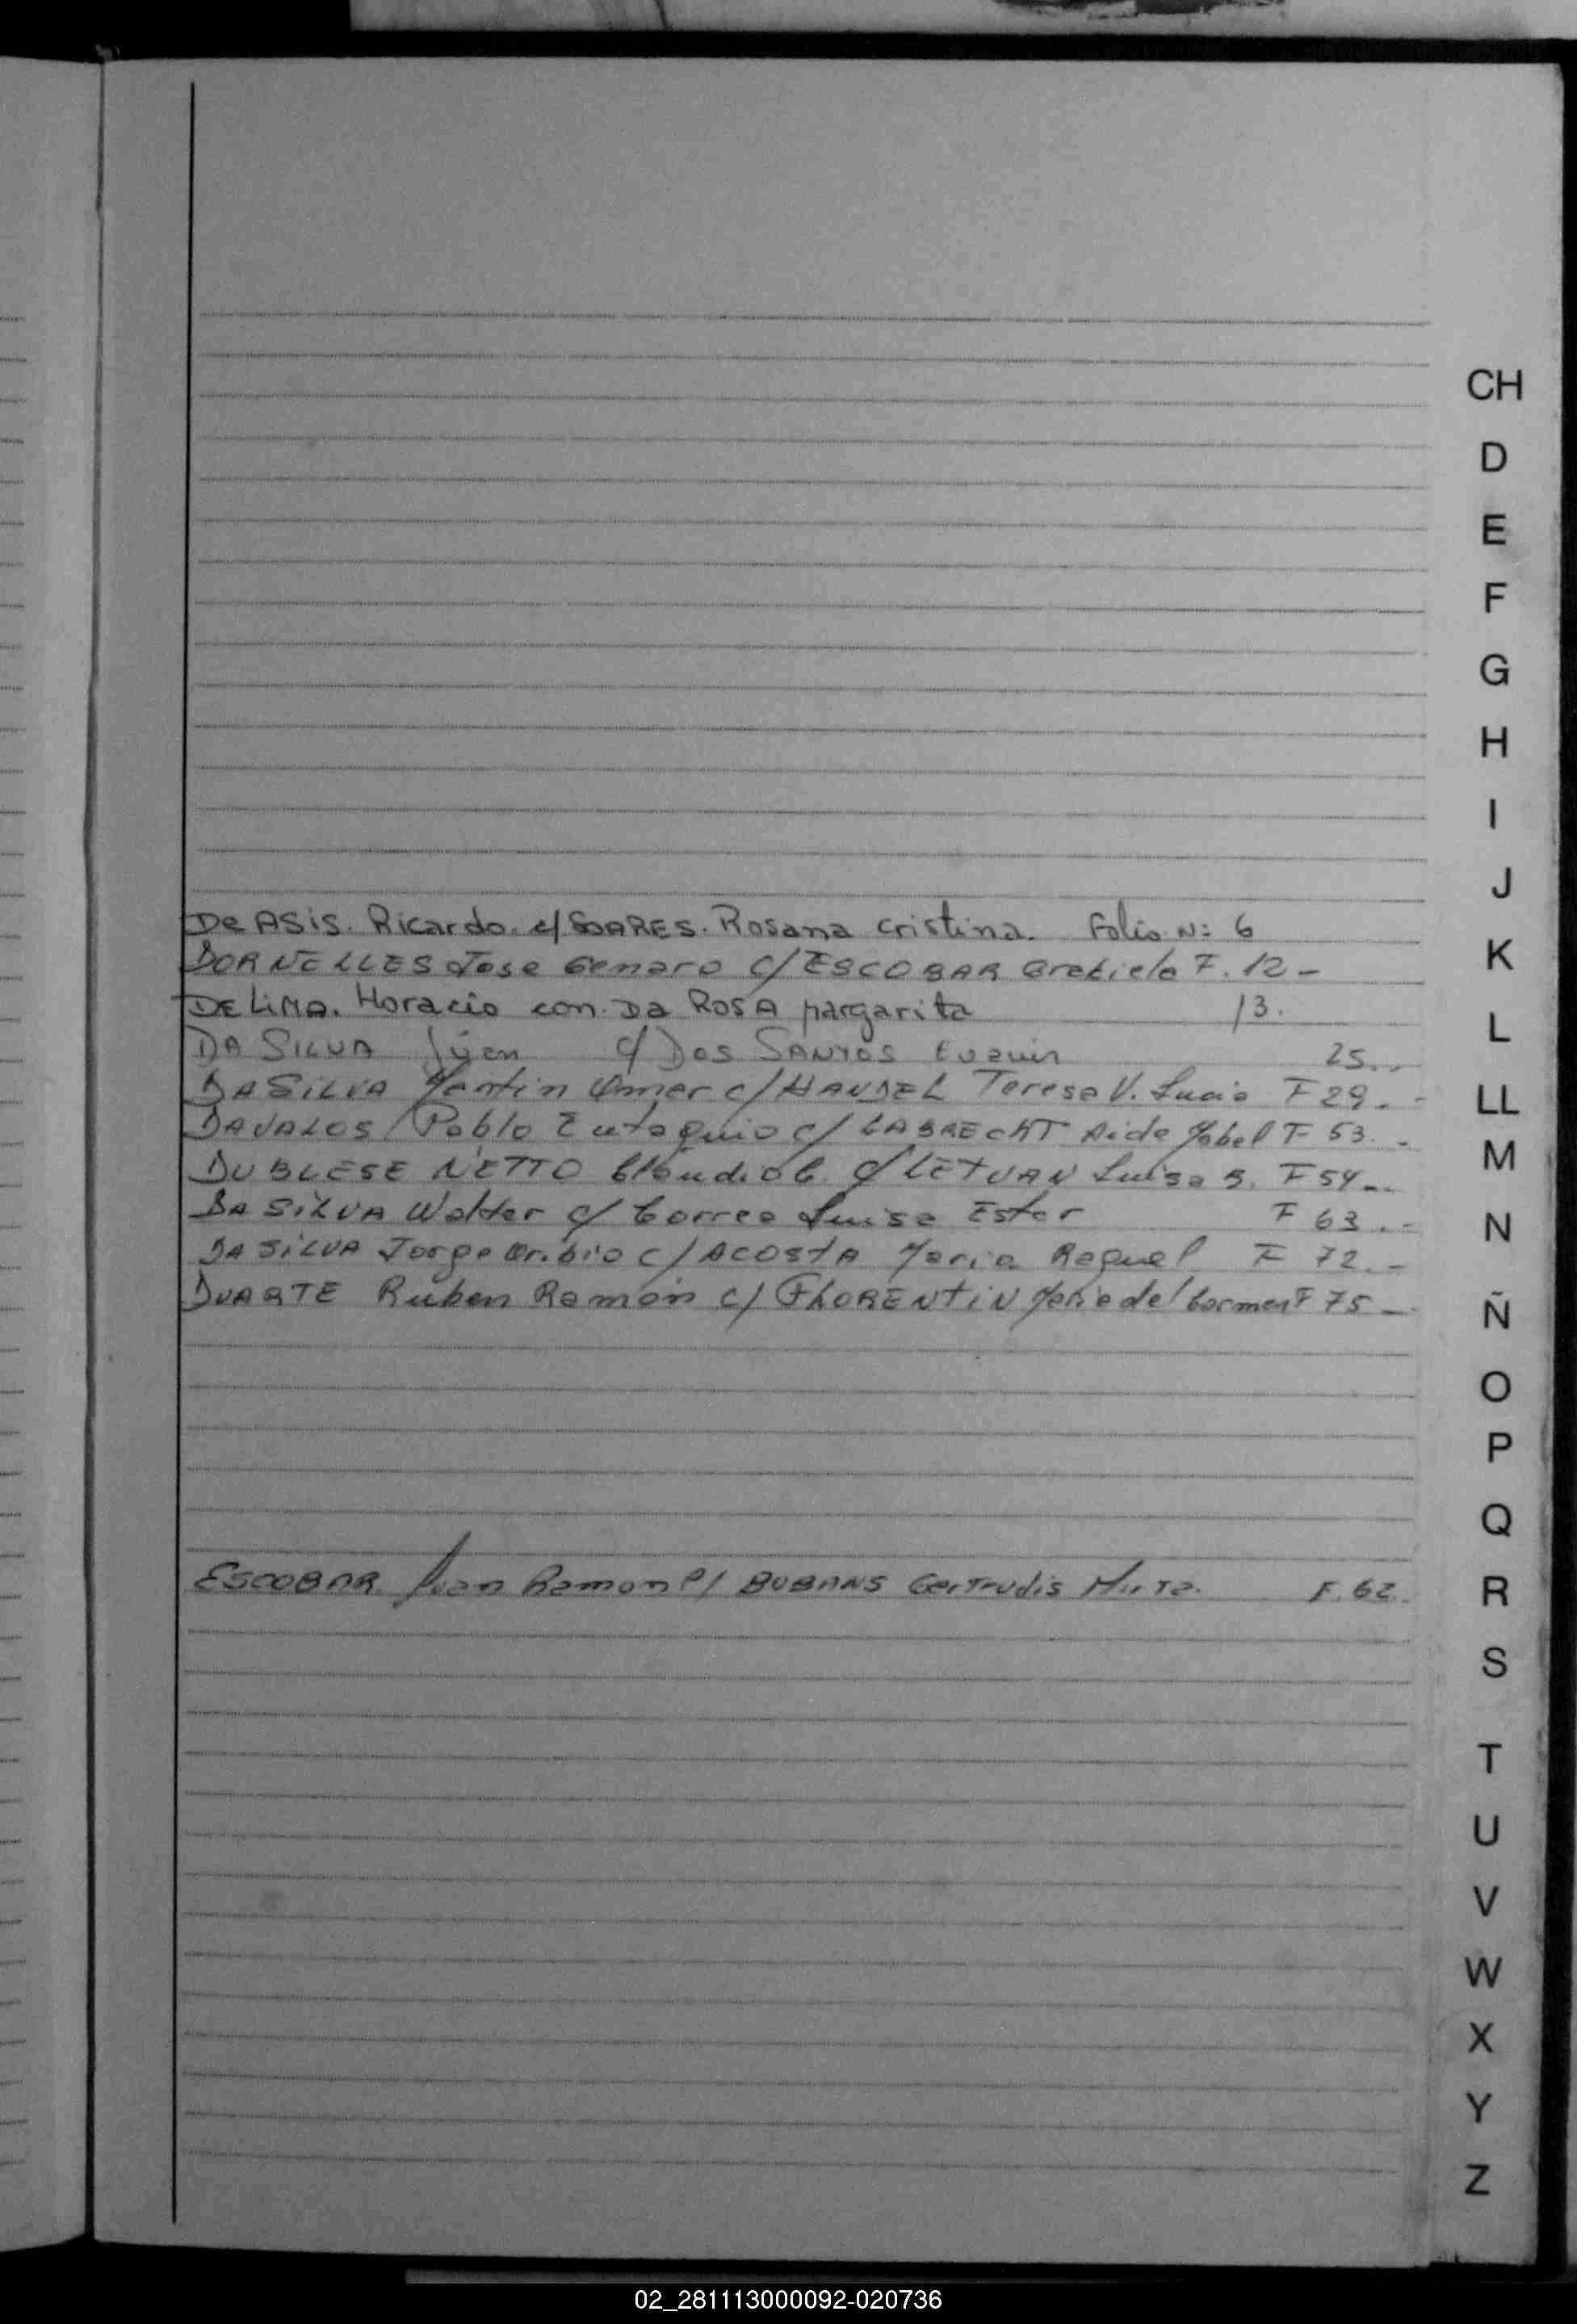 CH
D
E
F
G
H
I
J
De ASis. Ricardo. c/ SOARES. Rosana Cristina. Folio N: 6
DORNELLES Jose Genaro c/ ESCOBAR Graciela F. 12 -
K
DE LIMA. Horacio con. Da ROSA Margarita 13.
L
DA SILVA Juan c/ Dos SANTOS 25..
DA SILVA Martin Omer c/ HANDEL Teresa V. Lucia F 29. -
LL
DAVALOS Pablo Eutaquio c/ LABRECHT Aide Mabel F 53. -
M
DUBLESE NETTO Claudio C. c/ LETVAN Luisa S. F 54 -
DA SILVA Walter c/ Correa Luisa Ester F 63. -
N
DA SILVA Jorge Oribio c/ ACOSTA Maria Raquel F 72. -
DUARTE Ruben Ramón c/ FLORENTIN Maria del Carmen F 75 -
Ñ
O
P
Q
ESCOBAR Juan Ramon c/ BUBANS Gertrudis F. 62.
R
S
T
U
V
W
X
Y
Z
02_281113000092-020736